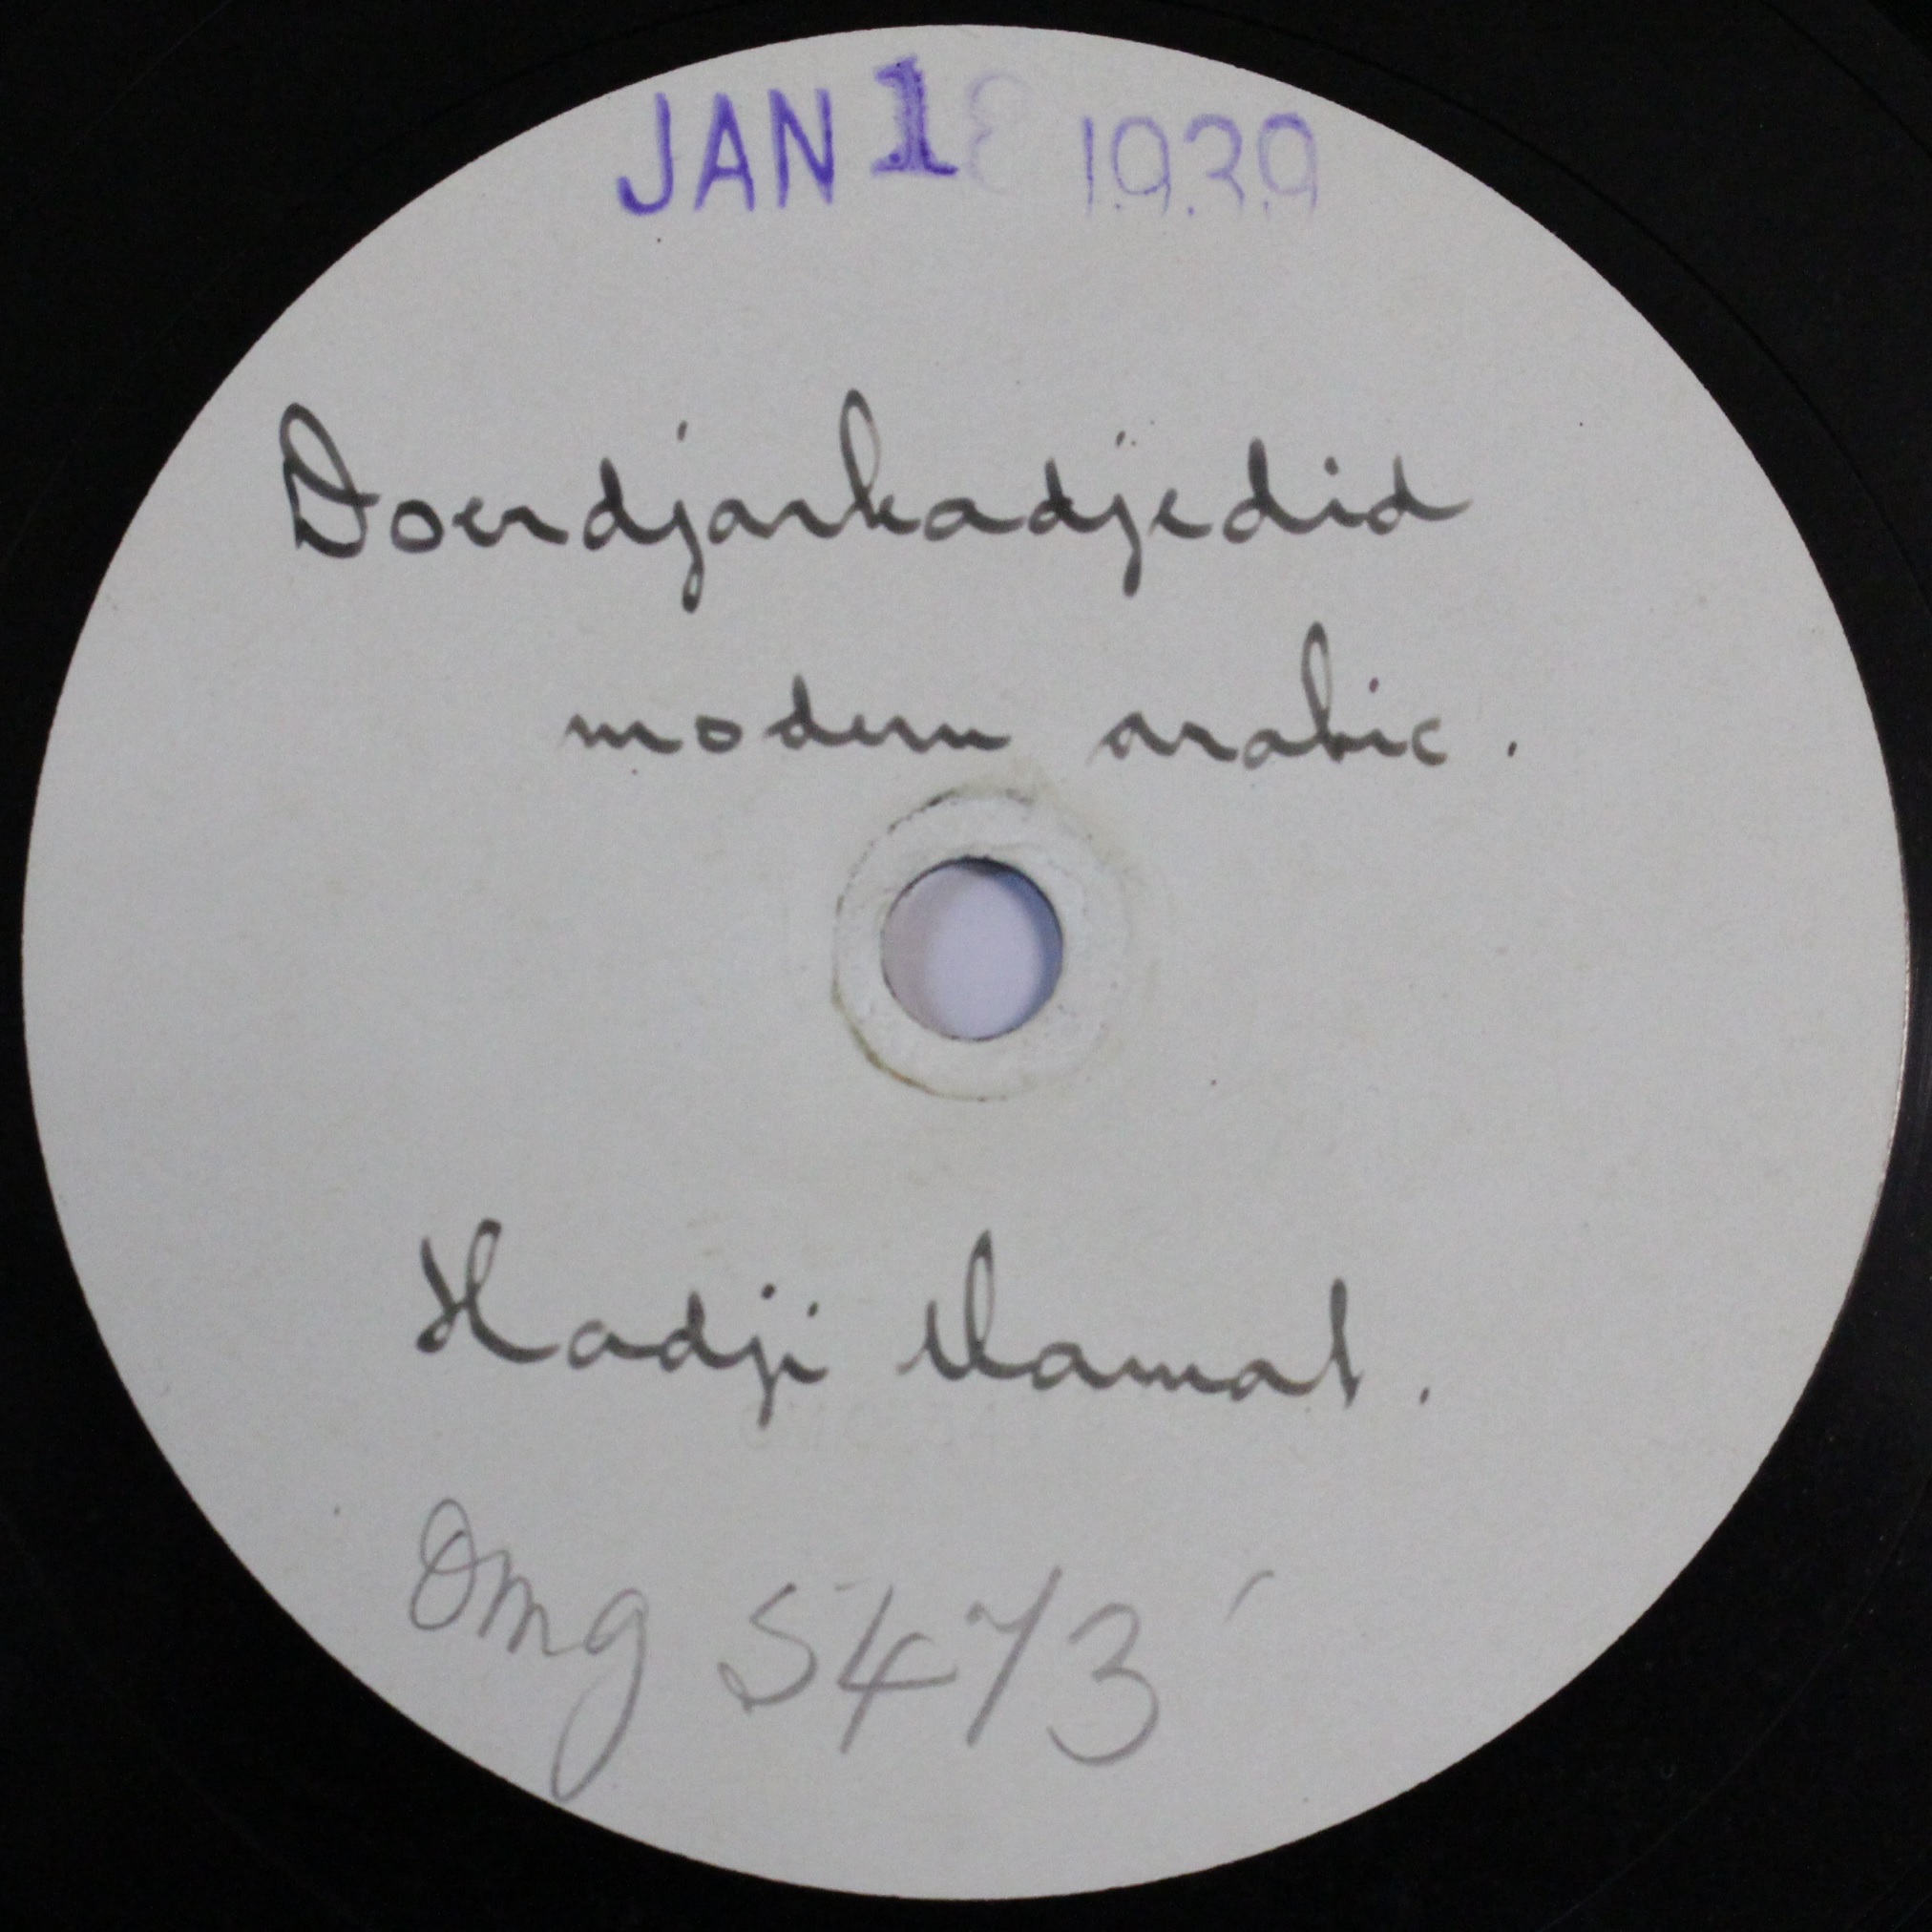 JAN 18 1939
Doerdjarkadjedid
modern arabic.
Hadji Mamat.
Omg 5473